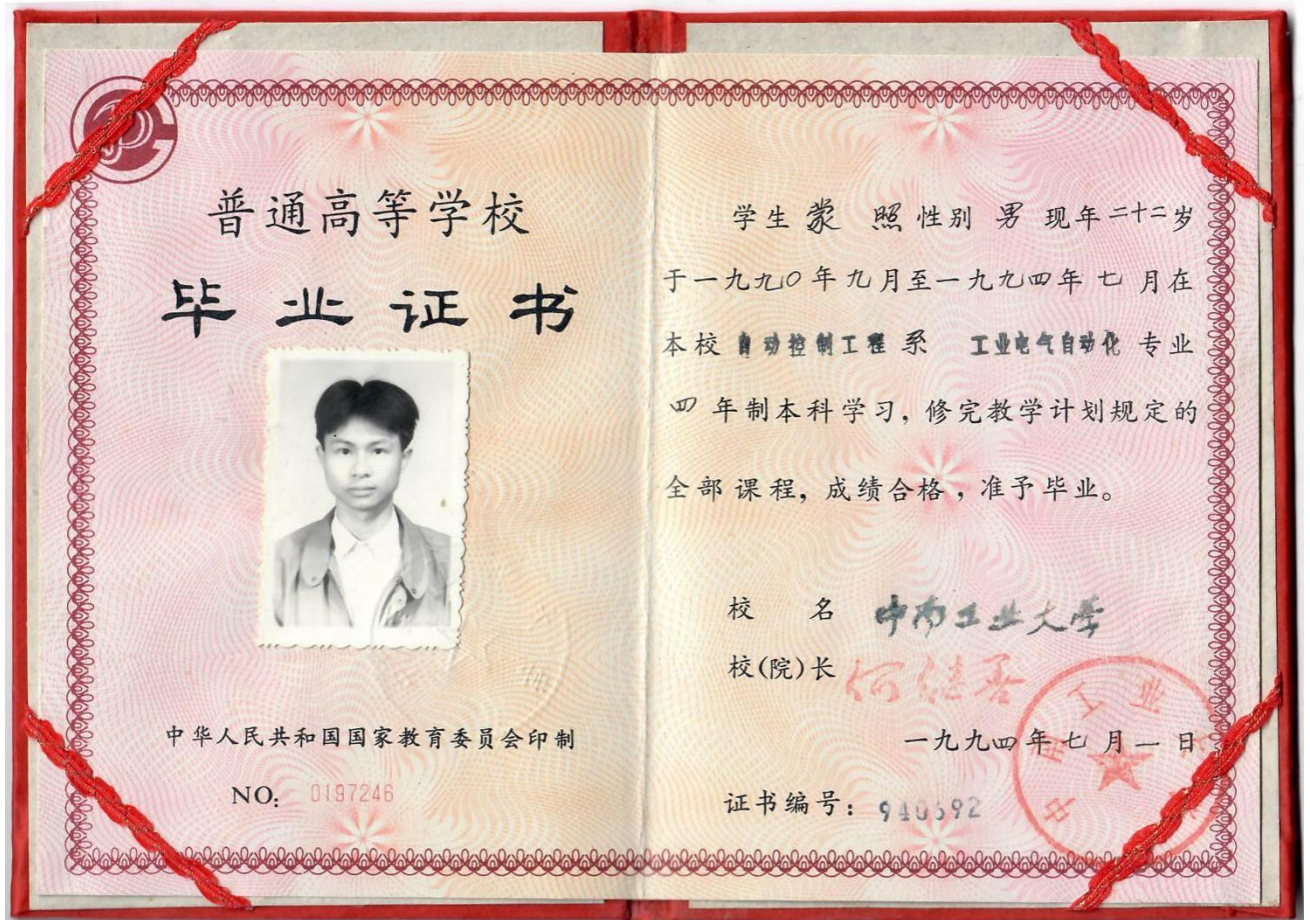 普通高等学校
毕业证书
中华人民共和国国家教育委员会印制
NO: 0197246
学生 蒙 照 性别 男 现年 二十二岁
于一九九〇年九月至一九九四年七月在
本校 自动控制工程系 工业电气自动化 专业
四年制本科学习, 修完教学计划规定的
全部课程, 成绩合格, 准予毕业。
校 名 中南工业大学
校(院)长 何继善
一九九四年七月一日
证书编号: 940692
中南工业大学